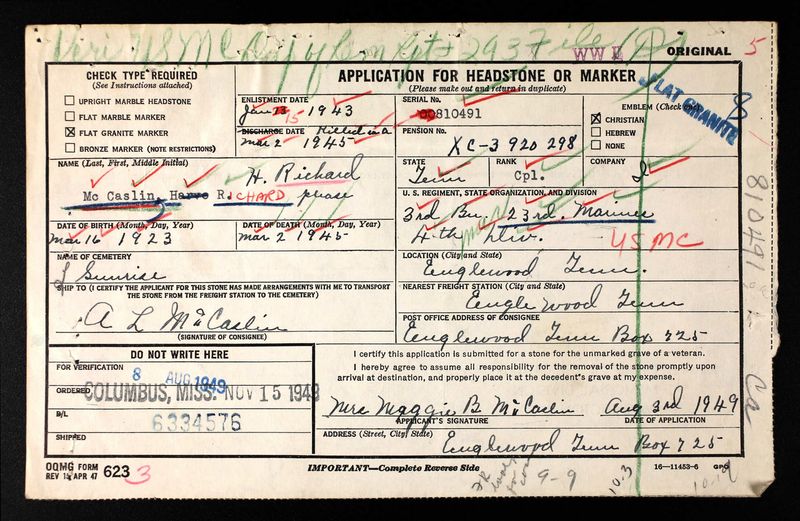 Veri USMC
WW II
ORIGINAL
5
CHECK TYPE REQUIRED
(See Instructions attached)
UPRIGHT MARBLE HEADSTONE
FLAT MARBLE MARKER
☒ FLAT GRANITE MARKER
BRONZE MARKER (NOTE RESTRICTIONS)
APPLICATION FOR HEADSTONE OR MARKER
(Please make out and return in duplicate)
ENLISTMENT DATE
Jan 13 15 1943
DISCHARGE DATE Killed in A
Mar 2 1945
SERIAL No.
00810491
PENSION No.
XC-3 920 298
EMBLEM (Check one)
☒ CHRISTIAN
HEBREW
NONE
FLAT GRANITE
NAME (Last, First, Middle Initial)
H. Richard
Mc Caslin, Harve R. RICHARD please
STATE
Tenn
RANK
Cpl.
COMPANY
I
U. S. REGIMENT, STATE ORGANIZATION, AND DIVISION
3rd Bn. 23rd. Marines
4th Div. USMC
DATE OF BIRTH (Month, Day, Year)
Mar 16 1923
DATE OF DEATH (Month, Day, Year)
Mar 2 1945
NAME OF CEMETERY
Sunrise
LOCATION (City and State)
Englewood Tenn.
SHIP TO (I CERTIFY THE APPLICANT FOR THIS STONE HAS MADE ARRANGEMENTS WITH ME TO TRANSPORT
THE STONE FROM THE FREIGHT STATION TO THE CEMETERY)
A L McCaslin
(SIGNATURE OF CONSIGNEE)
NEAREST FREIGHT STATION (City and State)
Englewood Tenn
POST OFFICE ADDRESS OF CONSIGNEE
Englewood Tenn Box 725
DO NOT WRITE HERE
FOR VERIFICATION
8 AUG 1949
ORDERED
COLUMBUS, MISS. NOV 15 1949
B/L
6334576
SHIPPED
I certify this application is submitted for a stone for the unmarked grave of a veteran.
I hereby agree to assume all responsibility for the removal of the stone promptly upon
arrival at destination, and properly place it at the decedent's grave at my expense.
Mrs Maggie B. McCaslin Aug 3rd 1949
APPLICANT'S SIGNATURE
DATE OF APPLICATION
ADDRESS (Street, City, State)
Englewood Tenn Box 725
OQMG FORM
REV 15 APR 47
623
3
IMPORTANT—Complete Reverse Side
16—11453-6 GPO
9-9
10-3
10-19
810491
Ca